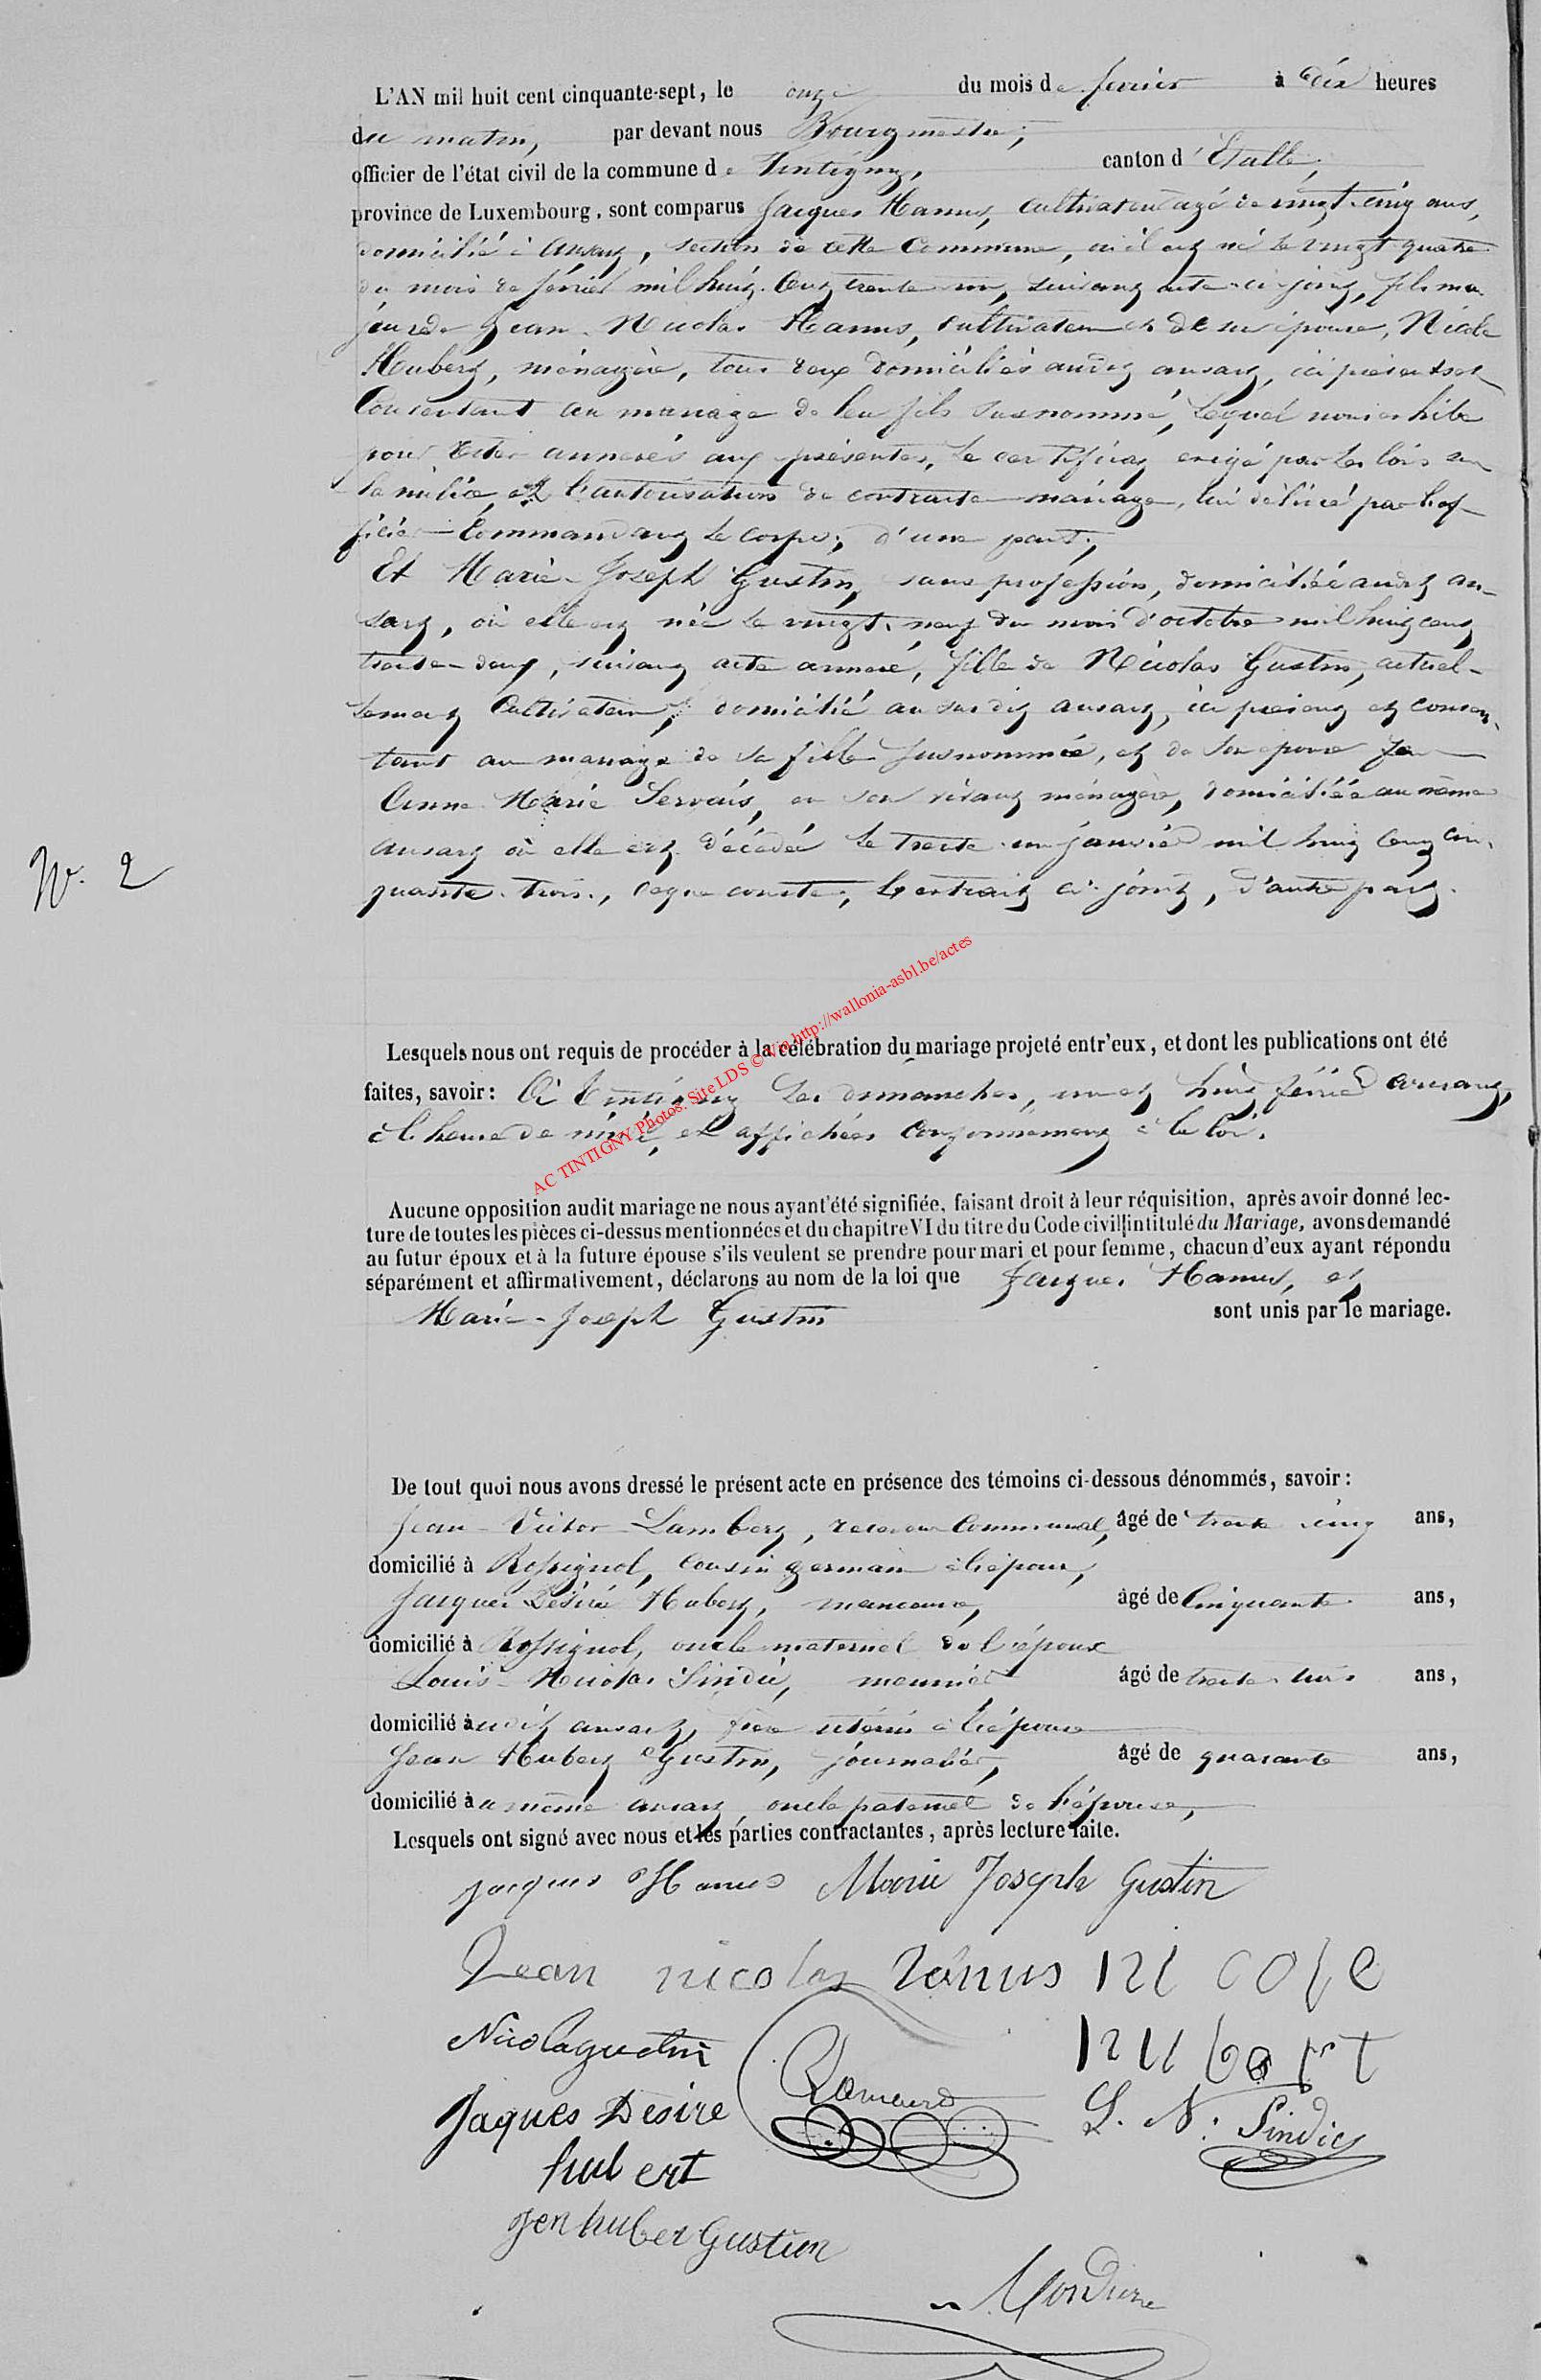 L'AN mil huit cent cinquante-sept, le onze du mois de février à dix heures
du matin, par devant nous Bourgmestre,
officier de l'état civil de la commune de Tintigny, canton d'Étalle,
province de Luxembourg, sont comparus Jacques Hanus, cultivateur agé de vingt-cinq ans,
domicilié à Ansart, section de cette commune, où il est né le vingt quatre
du mois de février mil huit cent trente un, suivant acte ci-joint, fils ma-
jeur de Jean-Nicolas Hanus, cultivateur et de son épouse, Nicole
Hubert, ménagère, tous deux domiciliés audit ansart, ici présents et
Consentant au mariage de leur fils susnommé, lequel nous exhibe
pour rester annexés aux présentes, le certificat exigé par les lois sur
la milice, et l'autorisation de contracter mariage, lui délivré par l'of-
ficier Commandant le corps; d'une part;
Et Marie-Joseph Gustin, sans profession, domiciliée audit an-
sart, où elle est née le vingt-neuf du mois d'octobre mil huit cent
trente-deux, suivant acte annexé, fille de Nicolas Gustin, actuel-
lement Cultivateur, domicilié au susdit ansart, ici présent et consen-
tant au mariage de sa fille susnommée, et de son épouse feu
Anne-Marie Servais, en son vivant ménagère, domiciliée au même
ansart où elle est décédée le trente-un janvier mil huit cent cin-
N°. 2
quante-trois, ce que constate l'extrait ci-joint, d'autre part.
AC TINTIGNY Photos. Site LDS © Via http://wallonia-asbl.be/actes
Lesquels nous ont requis de procéder à la célébration du mariage projeté entr'eux, et dont les publications ont été
faites, savoir: À Tintigny les dimanches, un et huit février courant,
à l'heure de midi, et affichées conformément à la loi.
Aucune opposition audit mariage ne nous ayant été signifiée, faisant droit à leur réquisition, après avoir donné lec-
ture de toutes les pièces ci-dessus mentionnées et du chapitre VI du titre du Code civil intitulé du Mariage, avons demandé
au futur époux et à la future épouse s'ils veulent se prendre pour mari et pour femme, chacun d'eux ayant répondu
séparément et affirmativement, déclarons au nom de la loi que Jacques Hanus, et
Marie-Joseph Gustin sont unis par le mariage.
De tout quoi nous avons dressé le présent acte en présence des témoins ci-dessous dénommés, savoir:
Jean-Victor Lambert, receveur Communal, âgé de trente cinq ans,
domicilié à Rossignol, cousin germain à l'époux,
Jacques Désiré Hubert, âgé de Cinquante ans,
domicilié à Rossignol, oncle maternel de l'époux
Louis-Nicolas Sindic, meunier âgé de trente trois ans,
domicilié audit ansart, frère utérin à l'épouse
Jean Hubert Gustin, journalier, âgé de quarante ans,
domicilié au même ansart, oncle paternel de l'épouse,
Lesquels ont signé avec nous et les parties contractantes, après lecture faite.
jacques Hanus Marie Joseph Gustin
Jean nicolas hanus ni cole
Nicolas gustin hu bert
Jaques Desire L. N. Sindic
hubert
Jen huber Gustin